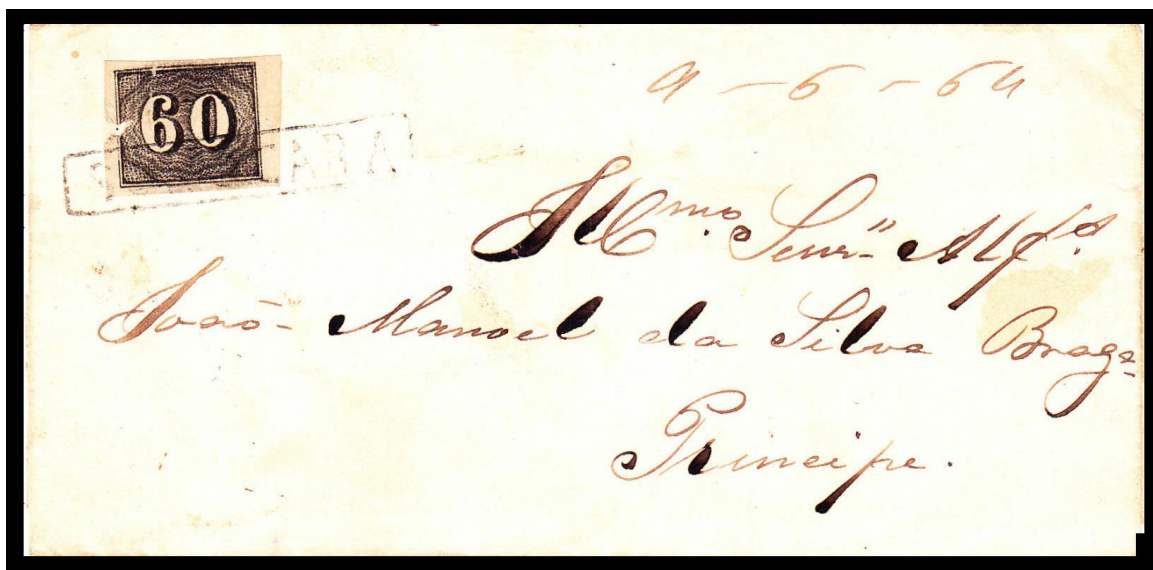 60
9 - 6 - 64
Illmo. Senr. Alfs.
João Manoel da Silva Braga
Principe.